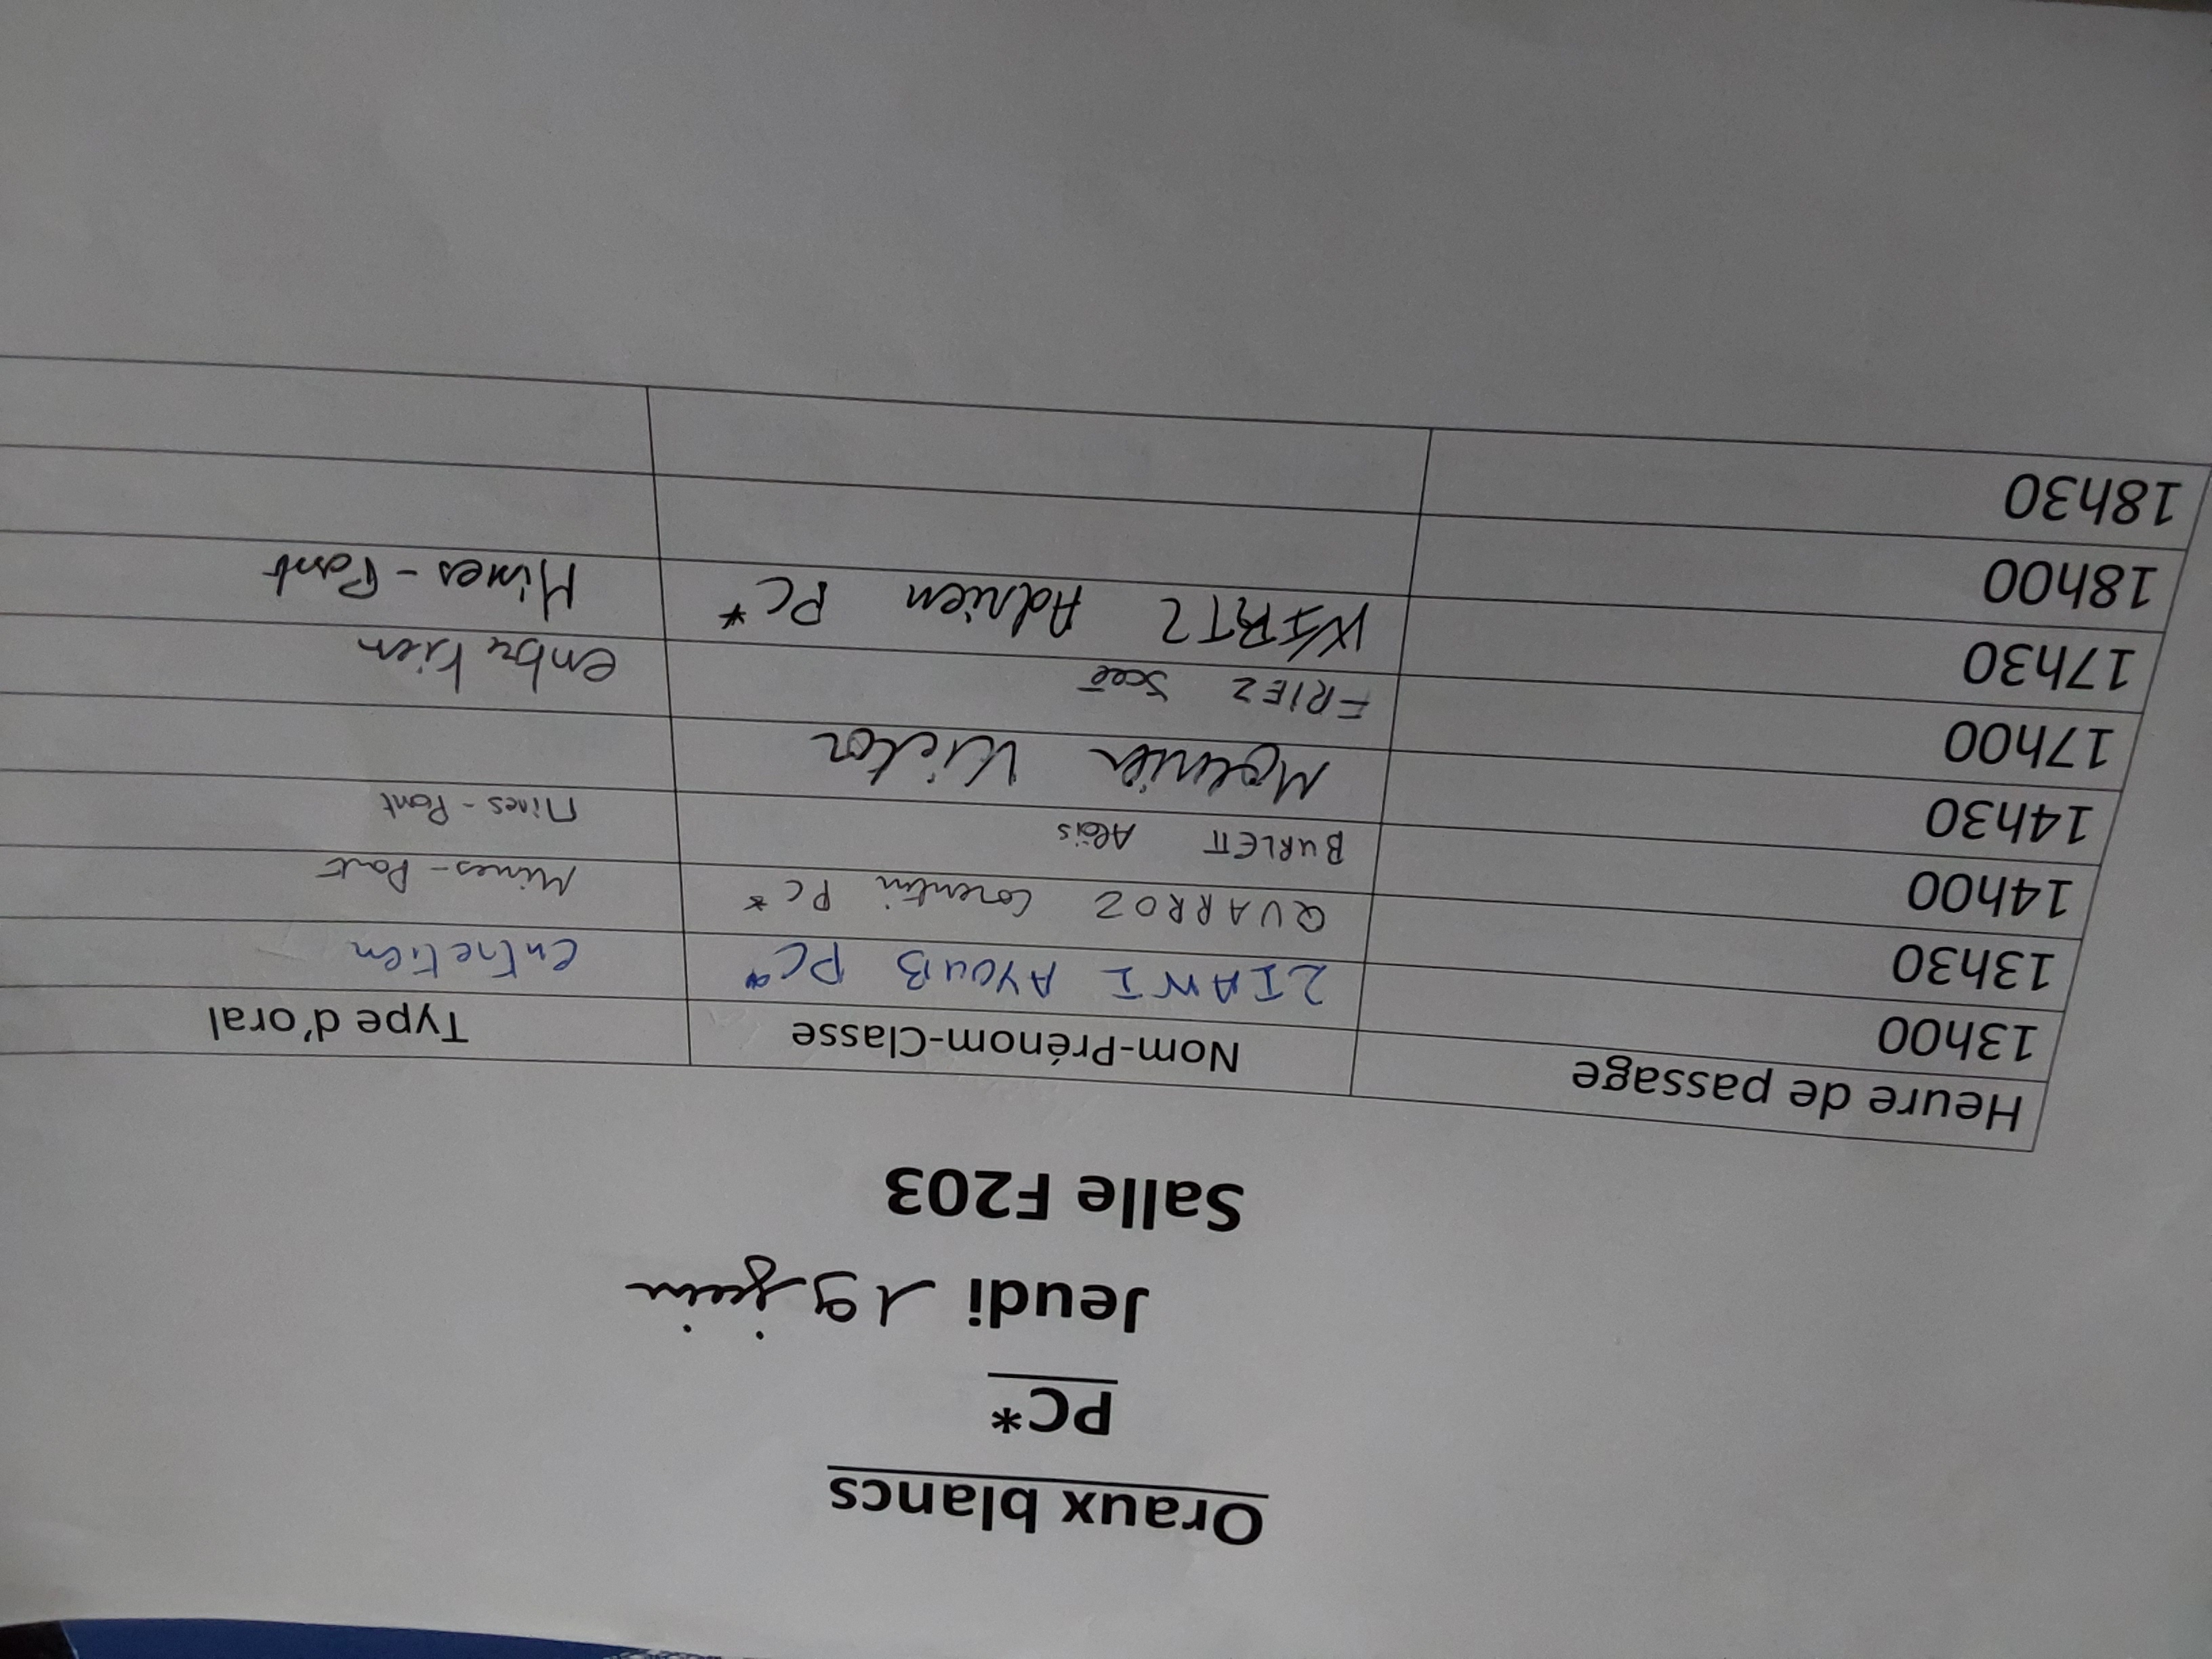 Oraux blancs
PC*
Jeudi 19 juin
Salle F203
Heure de passage Nom-Prénom-Classe Type d'oral
13h00 ZIANI AYOUB PC* entretien
13h30 QUARROZ Corentin PC* Mines-Pont
14h00 BURLETT Aloïs Mines-Pont
14h30 Victor
17h00 FRIEZ entretien
17h30 WIRTZ Adrien PC* Mines-Pont
18h00
18h30